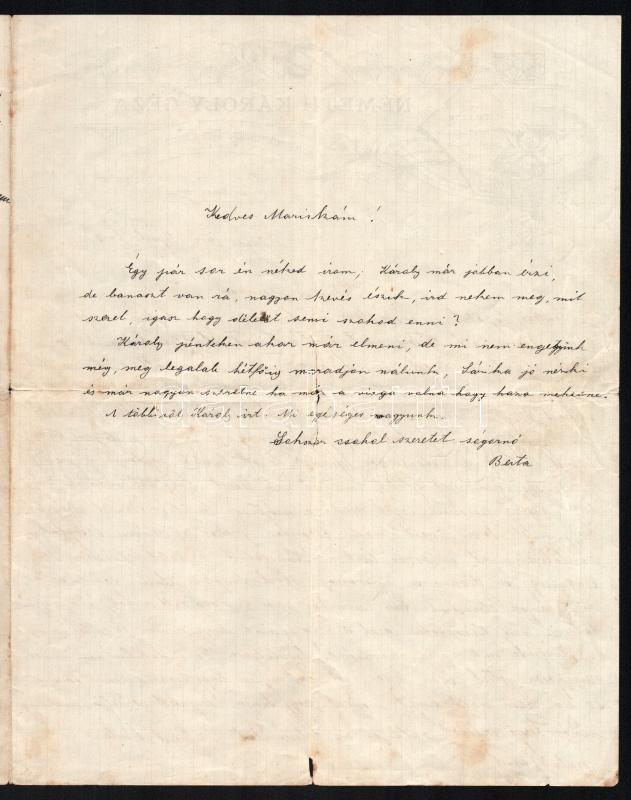 NÉMETH KÁROLY GÉZA
Kedves Mariskám!
Égy pár sor én néked irom, Károly már jobban érzi,
de banaszt van rá, nagyon kevés észik, ird nekem meg, mit
szeret, igasz hogy délelőt semi szokod enni?
Károly pénteken akar már elmeni, de mi nem engetjünk
még, meg legalab hétfőig maradjon nálunk, Sárika jó nérki
és már nagyon szeretne ha már a vizsga volna hogy haza mehesne.
A többiröl Károly irt. Mi egéséges vagyunk.
Sokszor csokol szeretet ségornő
Berta